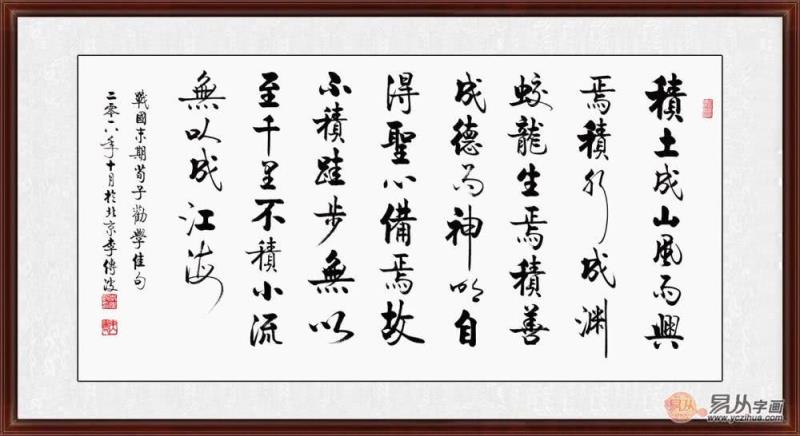 積土成山風雨興
焉積水成淵
蛟龍生焉積善
成德而神明自
得聖心備焉故
不積跬步無以
至千里不積小流
無以成江海
戰國末期荀子勸學佳句
二零一八年十月於北京李傳波
易从
易从字画
www.yczihua.com